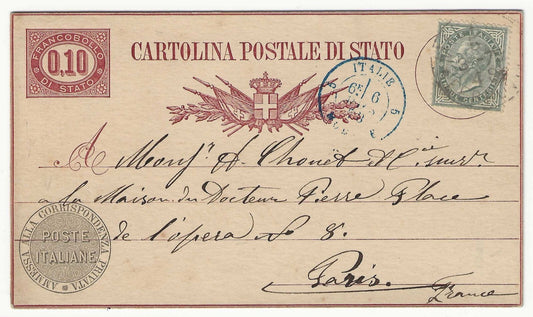 FRANCOBOLLO
0.10
DI STATO
CARTOLINA POSTALE DI STATO
ITALIE
6
5
A Monsr. A. Chonet & Cie
a la Maison du Docteur Pierre Place
de l'opera No 8.
Paris.
France
AMMESSA ALLA CORRISPONDENZA PRIVATA
POSTE
ITALIANE